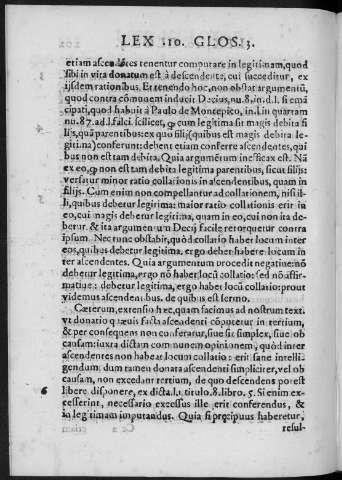 LEX 110. GLOS. 3.
etiam ascendétes tenentur computare in legitimam, quod
sibi in vita donatum est à descendente, cui succeditur, ex
ijsdem rationibus. Et tenendo hoc, non obstat argumētū,
quod contra cōmunem inducit Decius, nu. 8. in d. l. si emā
cipati, quod habuit à Paulo de Montepico, in. l. in quartam
nu. 87. ad l. falci. scilicet, ꝙ cum legitima sit magis debita fi
lijs, quā parentibus: ex quo filij (quibus est magis debita le-
gitima) conferunt: debent etiam conferre ascendentes, qui
bus non est tam debita. Quia argumētum inefficax est. Nā
ex eo, ꝙ non est tam debita legitima parentibus, sicut filijs:
versatur minor ratio collationis in ascendentibus, quam in
filijs. Cùm enim non compellantur ad collationem, nisi il-
li, quibus debetur legitima: maior ratio collationis erit in
eo, cui magis debetur legitima, quam in eo, cui non ita de-
betur. & ita argumentum Decij facile retorquetur contra
ipsum. Nec tunc obstabit, quòd collatio habet locum inter
eos, quibus debetur legitima. ergo debet habere locum in
ter ascendentes. Quia argumentum procedit negatiue: nō
debetur legitima, ergo nō habet locū collatio: sed nō affir-
matiue: debetur legitima, ergo habet locū collatio: prout
videmus ascendentibus. de quibus est sermo.
Cæterum, extensio hæc, quam facimus ad nostrum text.
vt donatio quæuis facta ascendenti cōputetur in tertium,
& per consequens non conferatur, siue sit simplex, siue ob
causam: iuxta dictam communem opinionem, quòd inter
ascendentes non habeat locum collatio: erit sane intelli-
gendum: dum tamen donata ascendenti simpliciter, vel ob
causam, non excedant tertium, de quo descendens potest
6 libere disponere, ex dicta. l. 1. titulo. 8. libro. 5. Si enim ex-
cesserint, necessario excessus ille erit conferendus, &
in legitimam imputandus. Quia si præcipuus haberetur,
resul-